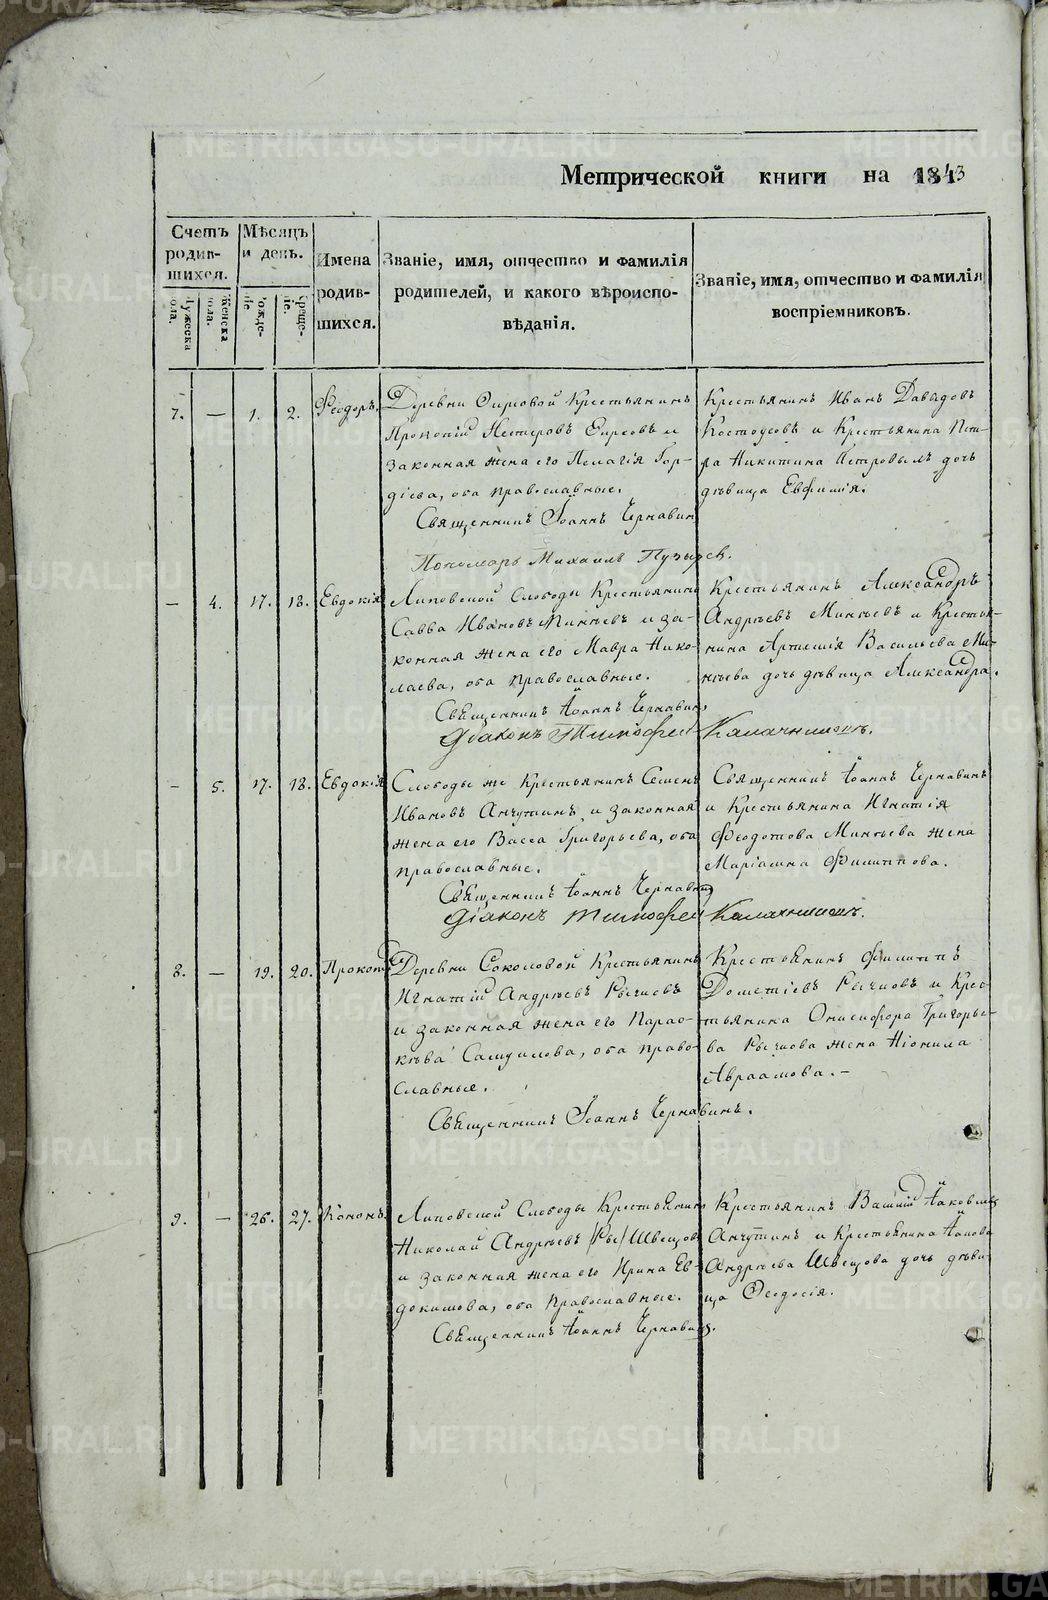 Метрической книги на 1843
Счетъ родив-шихся.
Мѣсяцъ и день.
Имена родив-шихся.
Званіе, имя, отчество и фамилія
родителей, и какого вѣроиспо-
вѣданія.
Званіе, имя, отчество и фамилія
воспріемниковъ.
7. — 1. 2. Феодоръ.
Деревни Охровой Крестьянинъ
Прокопій Нестеровъ и
законная жена его Пелагія Гор-
діева, оба православные.
Священникъ Іоаннъ Чернавин
Пономарь Михаилъ Пузырев.
Крестьянинъ Иванъ Давыдовъ
Костоусовъ и Крестьянина Пет-
ра Никитина Петровыхъ дочь
дѣвица Евфимія.
— 4. 17. 18. Евдокія
Липовской Слободы Крестьянинъ
Савва Ивановъ Минѣевъ и за-
конная жена его Мавра Нико-
лаева, оба православные.
Священникъ Іоаннъ Чернавинъ
Діаконъ Тимофей Калачниковъ.
Крестьянинъ Александръ
Андрѣевъ Минѣевъ и Крестья-
нина Артемія Васильева Ми-
нѣева дочь дѣвица Александра.
— 5. 17. 18. Евдокія
Слободы же Крестьянинъ Семенъ
Ивановъ Анчутинъ и законная
жена его Васса Григорьева, оба
православные.
Священникъ Іоаннъ Чернавин
Діаконъ Тимофей Калачниковъ.
Священникъ Іоаннъ Чернавинъ
и Крестьянина Игнатія
Феодотова Минѣева жена
Маріамна Филиппова.
8. — 19. 20. Прокопій
Деревни Соколовой Крестьянинъ
Игнатій Андрѣевъ Рычковъ
и законная жена его Парас-
кѣва Самуилова, оба право-
славные.
Священникъ Іоаннъ Чернавинъ.
Крестьянинъ Филиппъ
Дометіевъ Рычковъ и Крес-
тьянина Онисифора Григорье-
ва Рычкова жена Неонила
Авраамова. —
9. — 26. 27. Кононъ.
Липовской Слободы Крестьянинъ
Николай Андрѣевъ /Ры/ Швецовъ
и законная жена его Ирина Ев-
докимова, оба православные.
Священникъ Іоаннъ Чернавинъ.
Крестьянинъ Василій Іаковлевъ
Анчутинъ и Крестьянина Іакова
Андрѣева Швецова дочь дѣви-
ца Феодосія.
METRIKI.GASO-URAL.RU